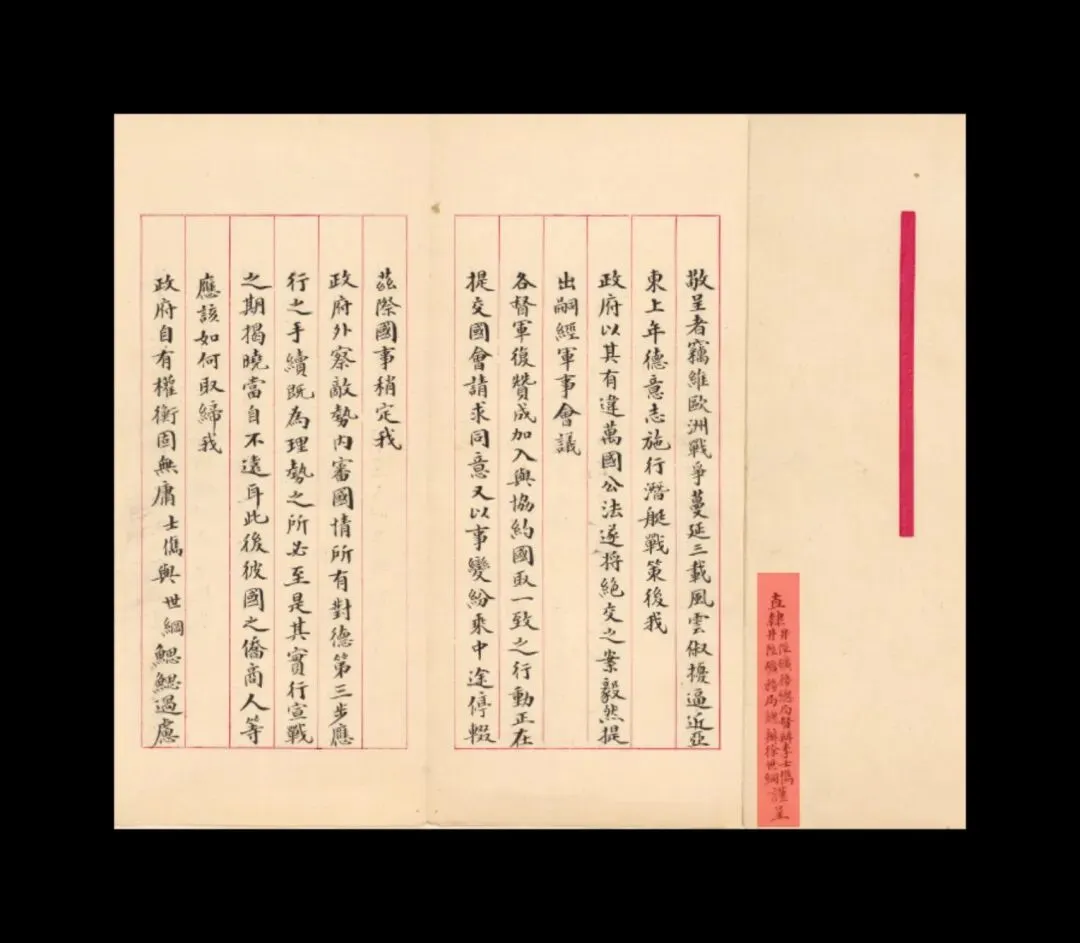 直隸井陘礦務總局督辦李士偉
井陘礦務局總辦徐世綱謹呈
敬呈者竊維歐洲戰爭蔓延三載風雲俶擾逼近亞
東上年德意志施行潛艇戰策後我
政府以其有違萬國公法遂將絕交之案毅然提
出嗣經軍事會議
各督軍復贊成加入與協約國取一致之行動正在
提交國會請求同意又以事變紛乘中途停輟
茲際國事稍定我
政府外察敵勢內審國情所有對德第三步應
行之手續既為理勢之所必至是其實行宣戰
之期揭曉當自不遠耳此後彼國之僑商人等
應該如何取締我
政府自有權衡固無庸士儁與世綱鰓鰓過慮